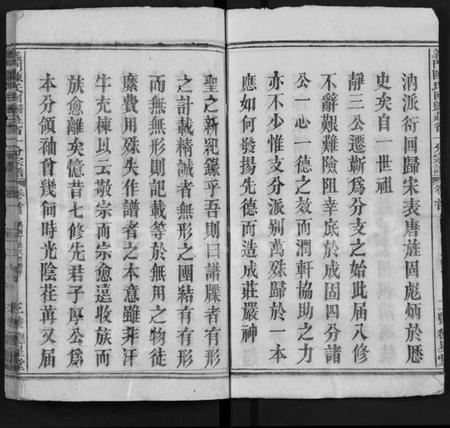 汭派衍回歸宋表唐旌固彪炳於歷
史矣自一世祖
靜三公遷蘄為分支之始此届八修
不辭艱難險阻幸底於成固四分諸
公一心一德之效而潤軒協助之力
亦不少惟支分派别萬殊歸於一本
應如何發揚先德而造成莊嚴神
聖之新紀錄乎吾則曰譜牒者有形
之計載精誠者無形之團結有有形
而無無形則記載等於無用之物徒
縻費用殊失作譜者之本意雖非汗
牛充棟以云敬宗而宗愈遠收族而
族愈離矣憶昔七修先君子厚公為
本分領袖曾幾何時光陰荏苒又届